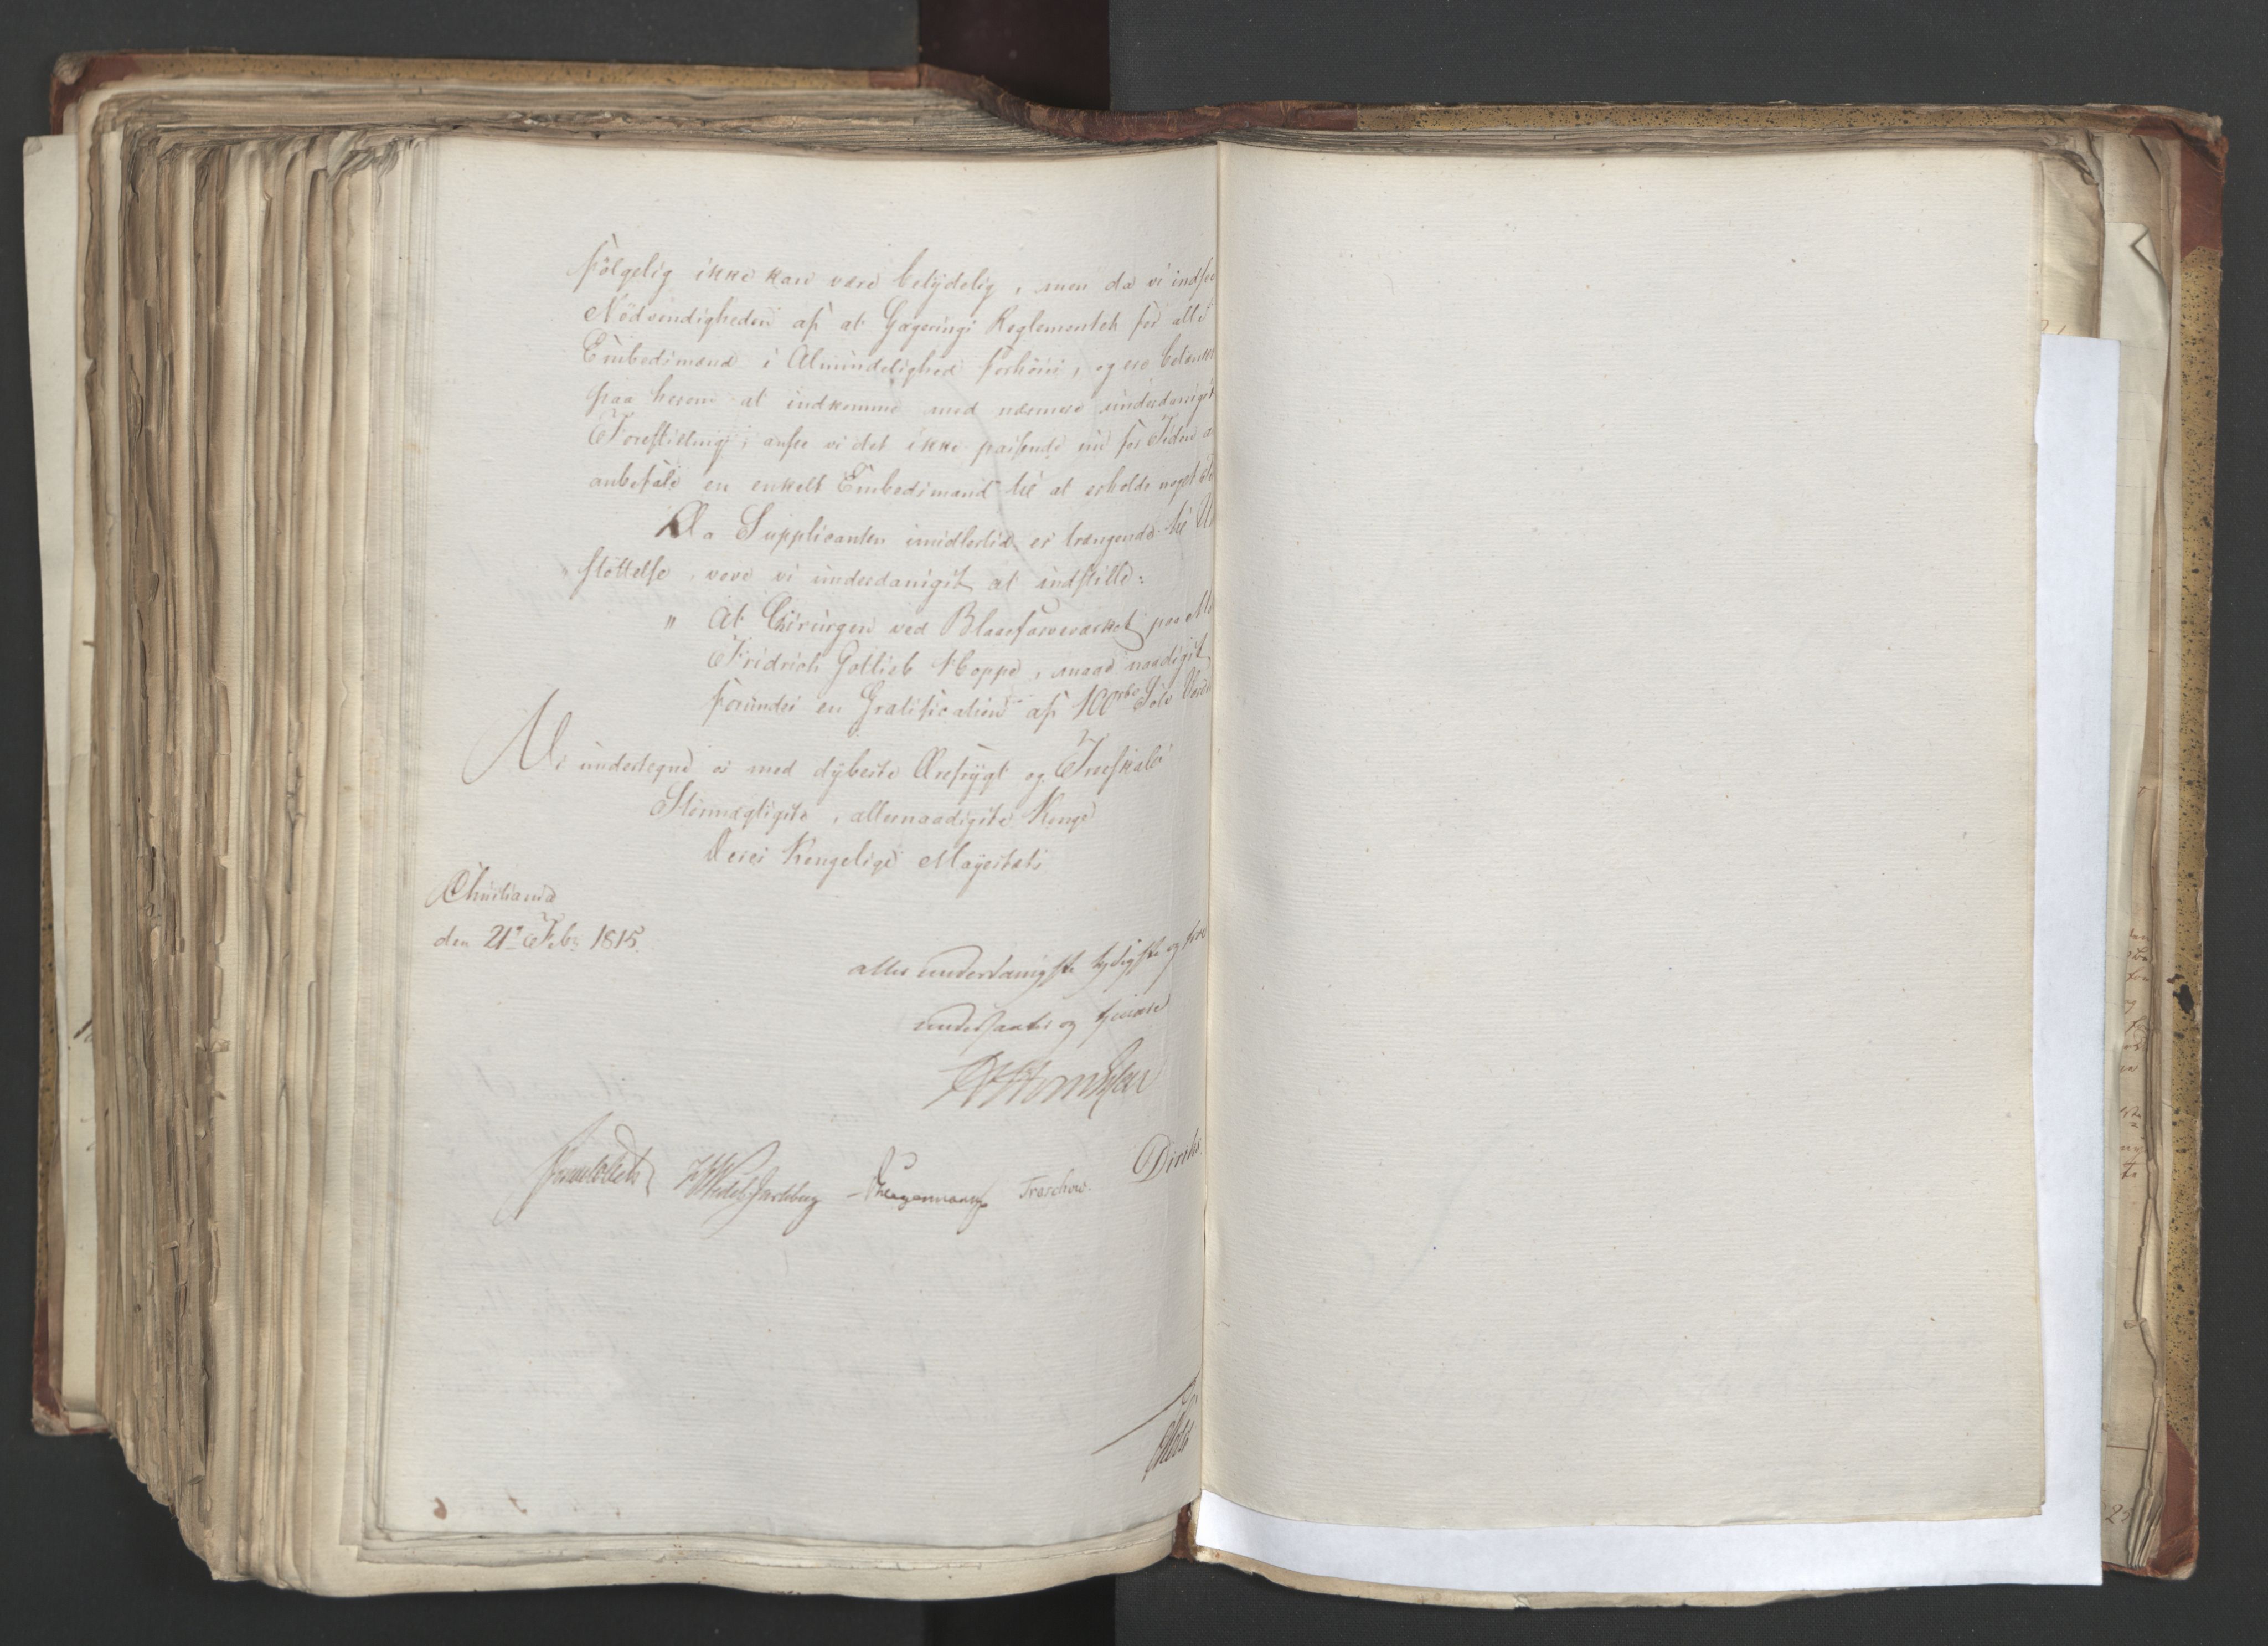 følgelig ikke kan være betydelig, men da vi indsee
Nödvendigheden af at Gagerings Reglementet for alle
Embedsmænd i Almindelighed forhöies, og ere betænkt
paa herom at indkomme med nærmere underdanigst
Forestilling, ansee vi det ikke passende nu for Tiden a
anbefale en enkelt Embedsmand til at erholde noget
Da Supplicanten imidlertid er trængende til Un
støttelse, vove vi underdanigst at indstille:
" At Chirurgen ved Blaaefarveværket paa Mo
Fridrich Gotlieb Hoppe, maae naadigst
forundes en Gratification af 100 rbd Sölv Værdi
Vi undertegne os med dybeste Ærefrygt og Troeskab
Stormægtigste, allernaadigste Konge
Deres Kongelige Mayestæts
Christiania
den 21de Febr 1815.
aller underdanigste lydigste og troe
undersaatter og tjenere
Sommerhielm
Collett HWedel Jarlsberg Hegermann Treschow. Diriks